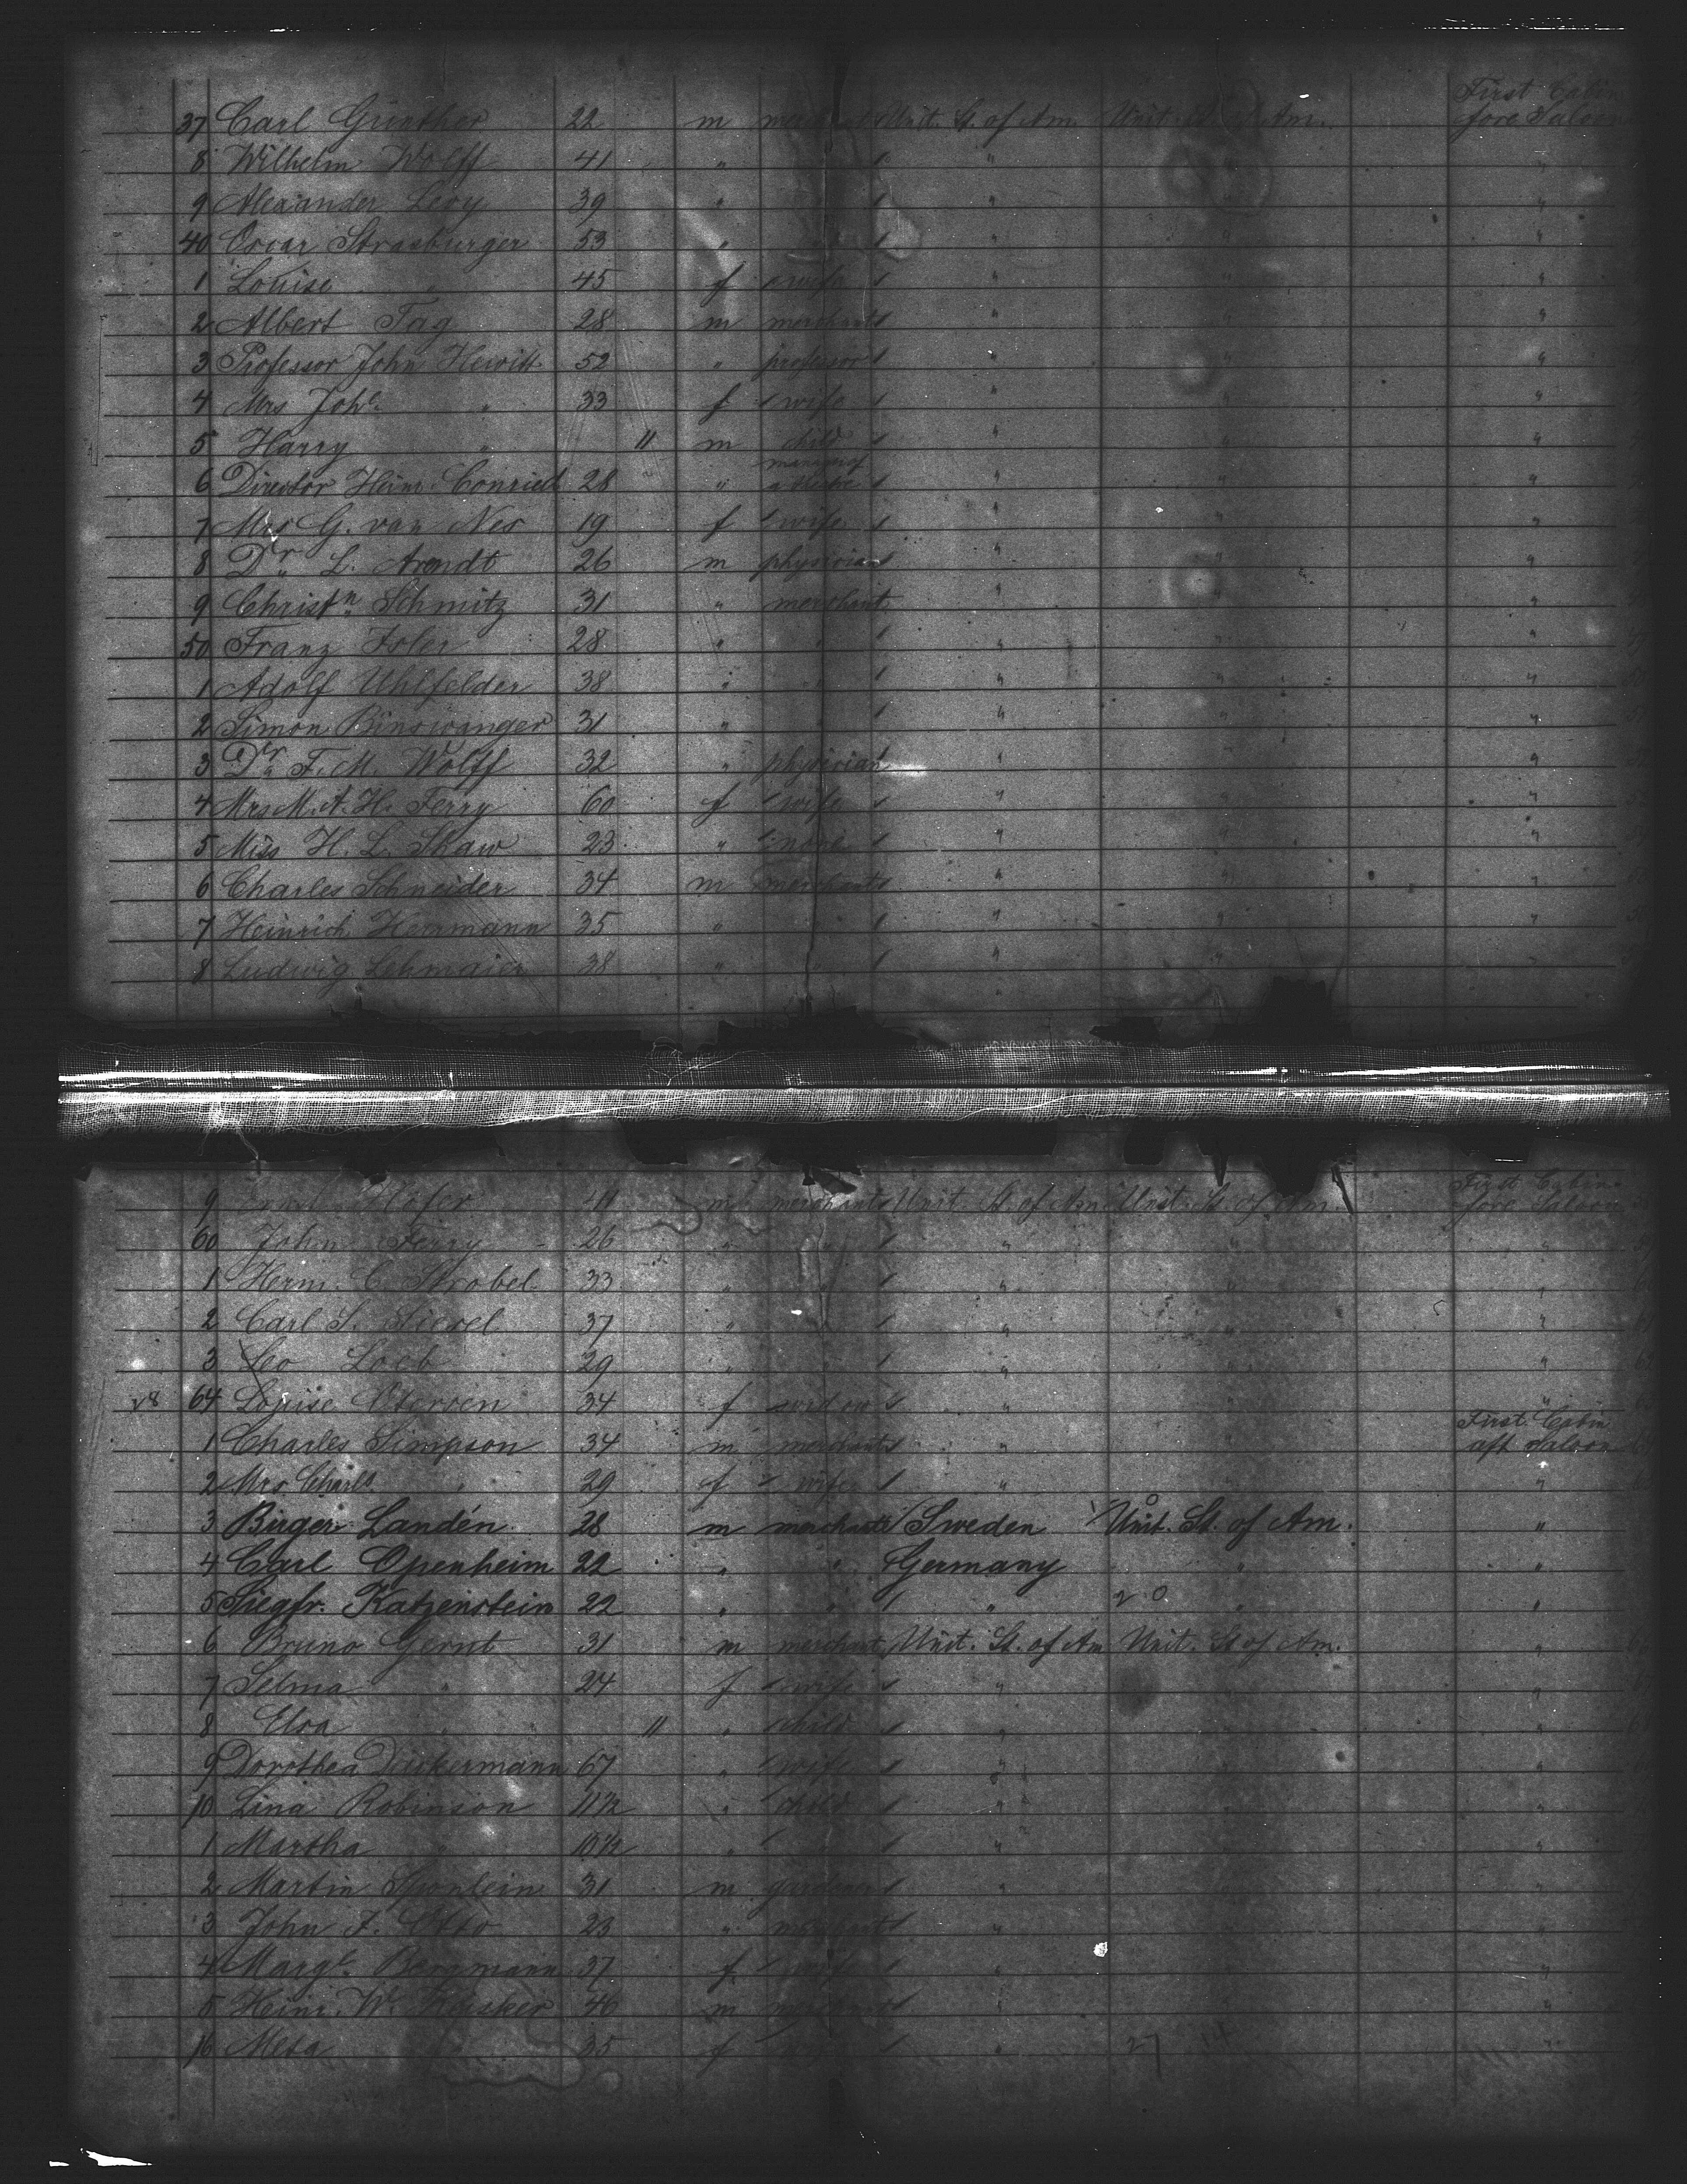 First Cabin
37 Carl Günther 22 m merchant Unit. St. of Am. Unit. St. of Am. fore Saloon
8 Wilhelm Wolff 41 " " " " "
9 Alexander Levy 39 " " " " "
40 Oscar Strasburger 53 " " " " "
1 Louise " 45 f wife " " "
2 Albert Tag 28 m merchant " " "
3 Professor John Hewitt 52 " professor " " "
4 Mrs Joh. " 33 f wife " " "
5 Harry " 11 m child " " "
manager of
6 Director Heinr. Conried 28 " a theatre " " "
7 Mrs G. van Nes 19 f wife " " "
8 Dr. L. Arendt 26 m physician " " "
9 Christn Schmitz 31 " merchant " " "
50 Franz Isler 28 " " " " "
1 Adolf Uhlfelder 38 " " " " "
2 Simon Binswanger 31 " " " " "
3 Dr. F. M. Wolff 32 " physician " " "
4 Mrs M. A. H. Ferry 60 f wife " " "
5 Miss H. L. Shaw 23 " none " " "
6 Charles Schneider 34 m merchant " " "
7 Heinrich Herrmann 35 " " " " "
8 Ludwig Lehmaier 38 " " " " "
First Cabin
9 41 m merchant Unit. St. of Am. Unit. St. of Am. fore Saloon
60 John Ferry 26 " " " " "
1 Herm. C. Strobel 33 " " " " "
2 Carl S. 37 " " " " "
3 Leo Loeb 29 " " " " "
64 Louise 34 f widow " " "
First Cabin
1 Charles Simpson 34 m merchant " " aft Saloon
2 Mrs Charls " 29 f wife " " "
3 Birger Landén 28 m merchant Sweden Unit. St. of Am. "
4 Carl Openheim 22 " " Germany " "
5 Siegfr. Katzenstein 22 " " " 20 " "
6 Bruno Gernt 31 m merchant Unit. St. of Am Unit. St of Am. "
7 Selma " 24 f wife " " "
8 Elsa " 11 " child " " "
9 Dorothea 67 " wife " " "
10 Lina Robinson 11½ " child " " "
1 Martha " 10½ " " " " "
2 Martin 31 m gardener " " "
3 John F. Otto 23 " merchant " " "
4 Margt. Bergmann 37 f wife " " "
5 Heinr. W. 46 m merchant " " "
16 Meta " 35 f wife " 27 14 "